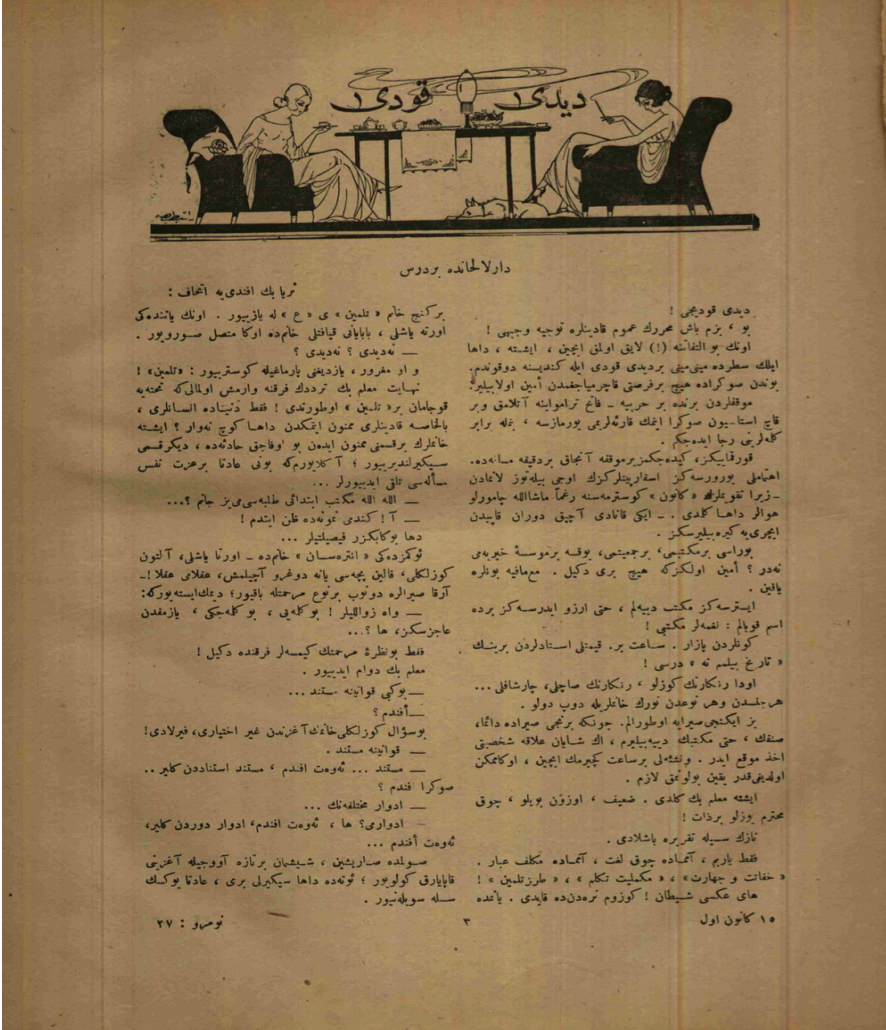 ديدى ١ قودى ١
دارلالحانده بردرس
ثريا بك افندىيه اتحاف :
ديدى قوديجى !
بو ، بزم باش محررك عموم قادينلره توجيه وجيهى !
اونك بو التفاتنه (!) لايق اولمق ايچين ، ايشته ، داها
ايلك سطرده مينىمينى برديدى قودى ايله كنديسنه دوقوندم.
بوندن صوكراده هيچ برفرصتى قاچرمياجغمدن أمين اولابيلير.
موقفلردن برنده بر حربيه ـ فاتح تراموايينه آتلامق وبر
قاچ استاسيون صوكرا اينمك قارئهلريمى يورمازسه ، بنمله برابر
كلمهلرينى رجا ايدهجكم .
قورقماييكز، كيدهجكمز برموقفه آنجاق بردقيقه مسافهده.
اهتماملى يورورسهكز اسقارپينلركزك اوجى بيله توز لانمادن
ـ زيرا تقويملرك «كانون» كوسترمهسنه رغماً ماشاالله چامورلو
هوالر داها كلدى . ـ ايكى قانادى آچيق دوران قاپيدن
ايچرىيه كيرهبيليرسكز .
بوراسى برمكتبمى، برجمعيتمى، يوقسه برمؤسسهٔ خيريهمى
نهدر ؟ أمين اولكزكه هيچ برى دكيل . معمافيه بونلره
ياقين .
ايسترسهكز مكتب دييهلم ، حتى آرزو ايدرسهكز برده
اسم قويالم : نغمهلر مكتبى !
كونلردن پازار . ساعت بر. قيمتلى استادلردن برينك
« تاريخ بيلمم نه » درسى !
اودا رنكارنك كوزلو ، رنكارنك صاچلى، چارشافلى ...
هرجلسدن وهر نوعدن تورك خانملريله دوپ دولو .
بز ايكنجى صيرايه اوطورالم. چونكه برنجى صيراده دائما،
صنفك ، حتى مكتبك دييهبيليرم ، اك شايان علاقه شخصيتى
اخذ موقع ايدر . ونشئهلى برساعت كچيرمك ايچين ، اوكا ممكن
اولديغى قدر يقين بولونمق لازم .
ايشته معلم بك كلدى . ضعيف ، اوزون بويلو ، چوق
محترم يوزلو برذات !
نازك سسيله تقريره باشلادى .
فقط ياربم ، آغاده چوق لغت ، آغاده مكلف عبار .
« خفات و جهارت » ، « مكمليت تكلم » ، « طرزتلمين » !
هاى عكسى شيطان ! كوزوم نرهدنده قايدى . يانمده
بركنج خانم « تلمين » ى « ع » له يازييور . اونك يانندهكى
اورته ياشلى ، بابايانى قيافتلى خانمده اوكا متصل صورويور .
— نهديدى ؟ نهديدى ؟
و او مغرور ، يازديغنى پارماغيله كوستريور : «تلعين» !
نهايت معلم بك ترددك فرقنه وارمش اولمالى كه تختهيه
قوجامان بر« تلمين » اوطورتدى ! فقط دنياده انسانلرى ،
بالخاصه قادينلرى ممنون ايتمكدن داها كوچ نهوار ؟ ايشته
خانملرك برقسمنى ممنون ايدن بو اوفاجق حادثهده ، ديكرقسمى
سيكيرلنديرييور ؛ آكلايورمكه بونى عادتا برعزت نفس
مسألهسى تلقى ايدييورلر ...
— الله الله مكتب ابتدائى طلبهسىمىيز جانم ؟...
— آ ! كندمى نمونهده ظن ايتدم !
دها بوكابكزر فيصيلتيلر ...
ئوكمزدهكى « انترهسان » خانمده ـ اورتا ياشلى، آلتون
كوزلكلى، قالين پچهسى يانه دوغرو آچيلمش، عقلالى عقلا !ـ
آرقا صيرالره دونوب برنوع مرحمتله باقيور؛ ديمك ايستهيوركه:
— واه زواللىلر ! بو كلمهيى ، بو كلمهجكى ، يازمقدن
عاجزسكز، ها ؟...
فقط بونظرهٔ مرحمتك كيمسهلر فرقنده دكيل !
معلم بك دوام ايدييور .
— بوكبى قوانينه مستند ...
— أفندم ؟
بوسؤال كوزلكلى خانمك آغزندن غير اختيارى، فيرلادى!
— قوانينه مستند .
— مستند ... ئهوهت افندم ، مستند استناددن كلير ..
صوكرا افندم ؟
— ادوار مختلفهنك ...
— ادوارمى؟ ها ، ئهوهت افندم، ادوار دوردن كلير،
ئهوهت أفندم ...
صولمده صاريشين ، شيشمان برتازه آووجيله آغزينى
قاپايارق كولويور ؛ ئوتهده داها سيكيرلى برى ، عادتا يوكسك
سسله سويلهنيور .
١٥ كانون اول
٣
نومرو : ٢٧